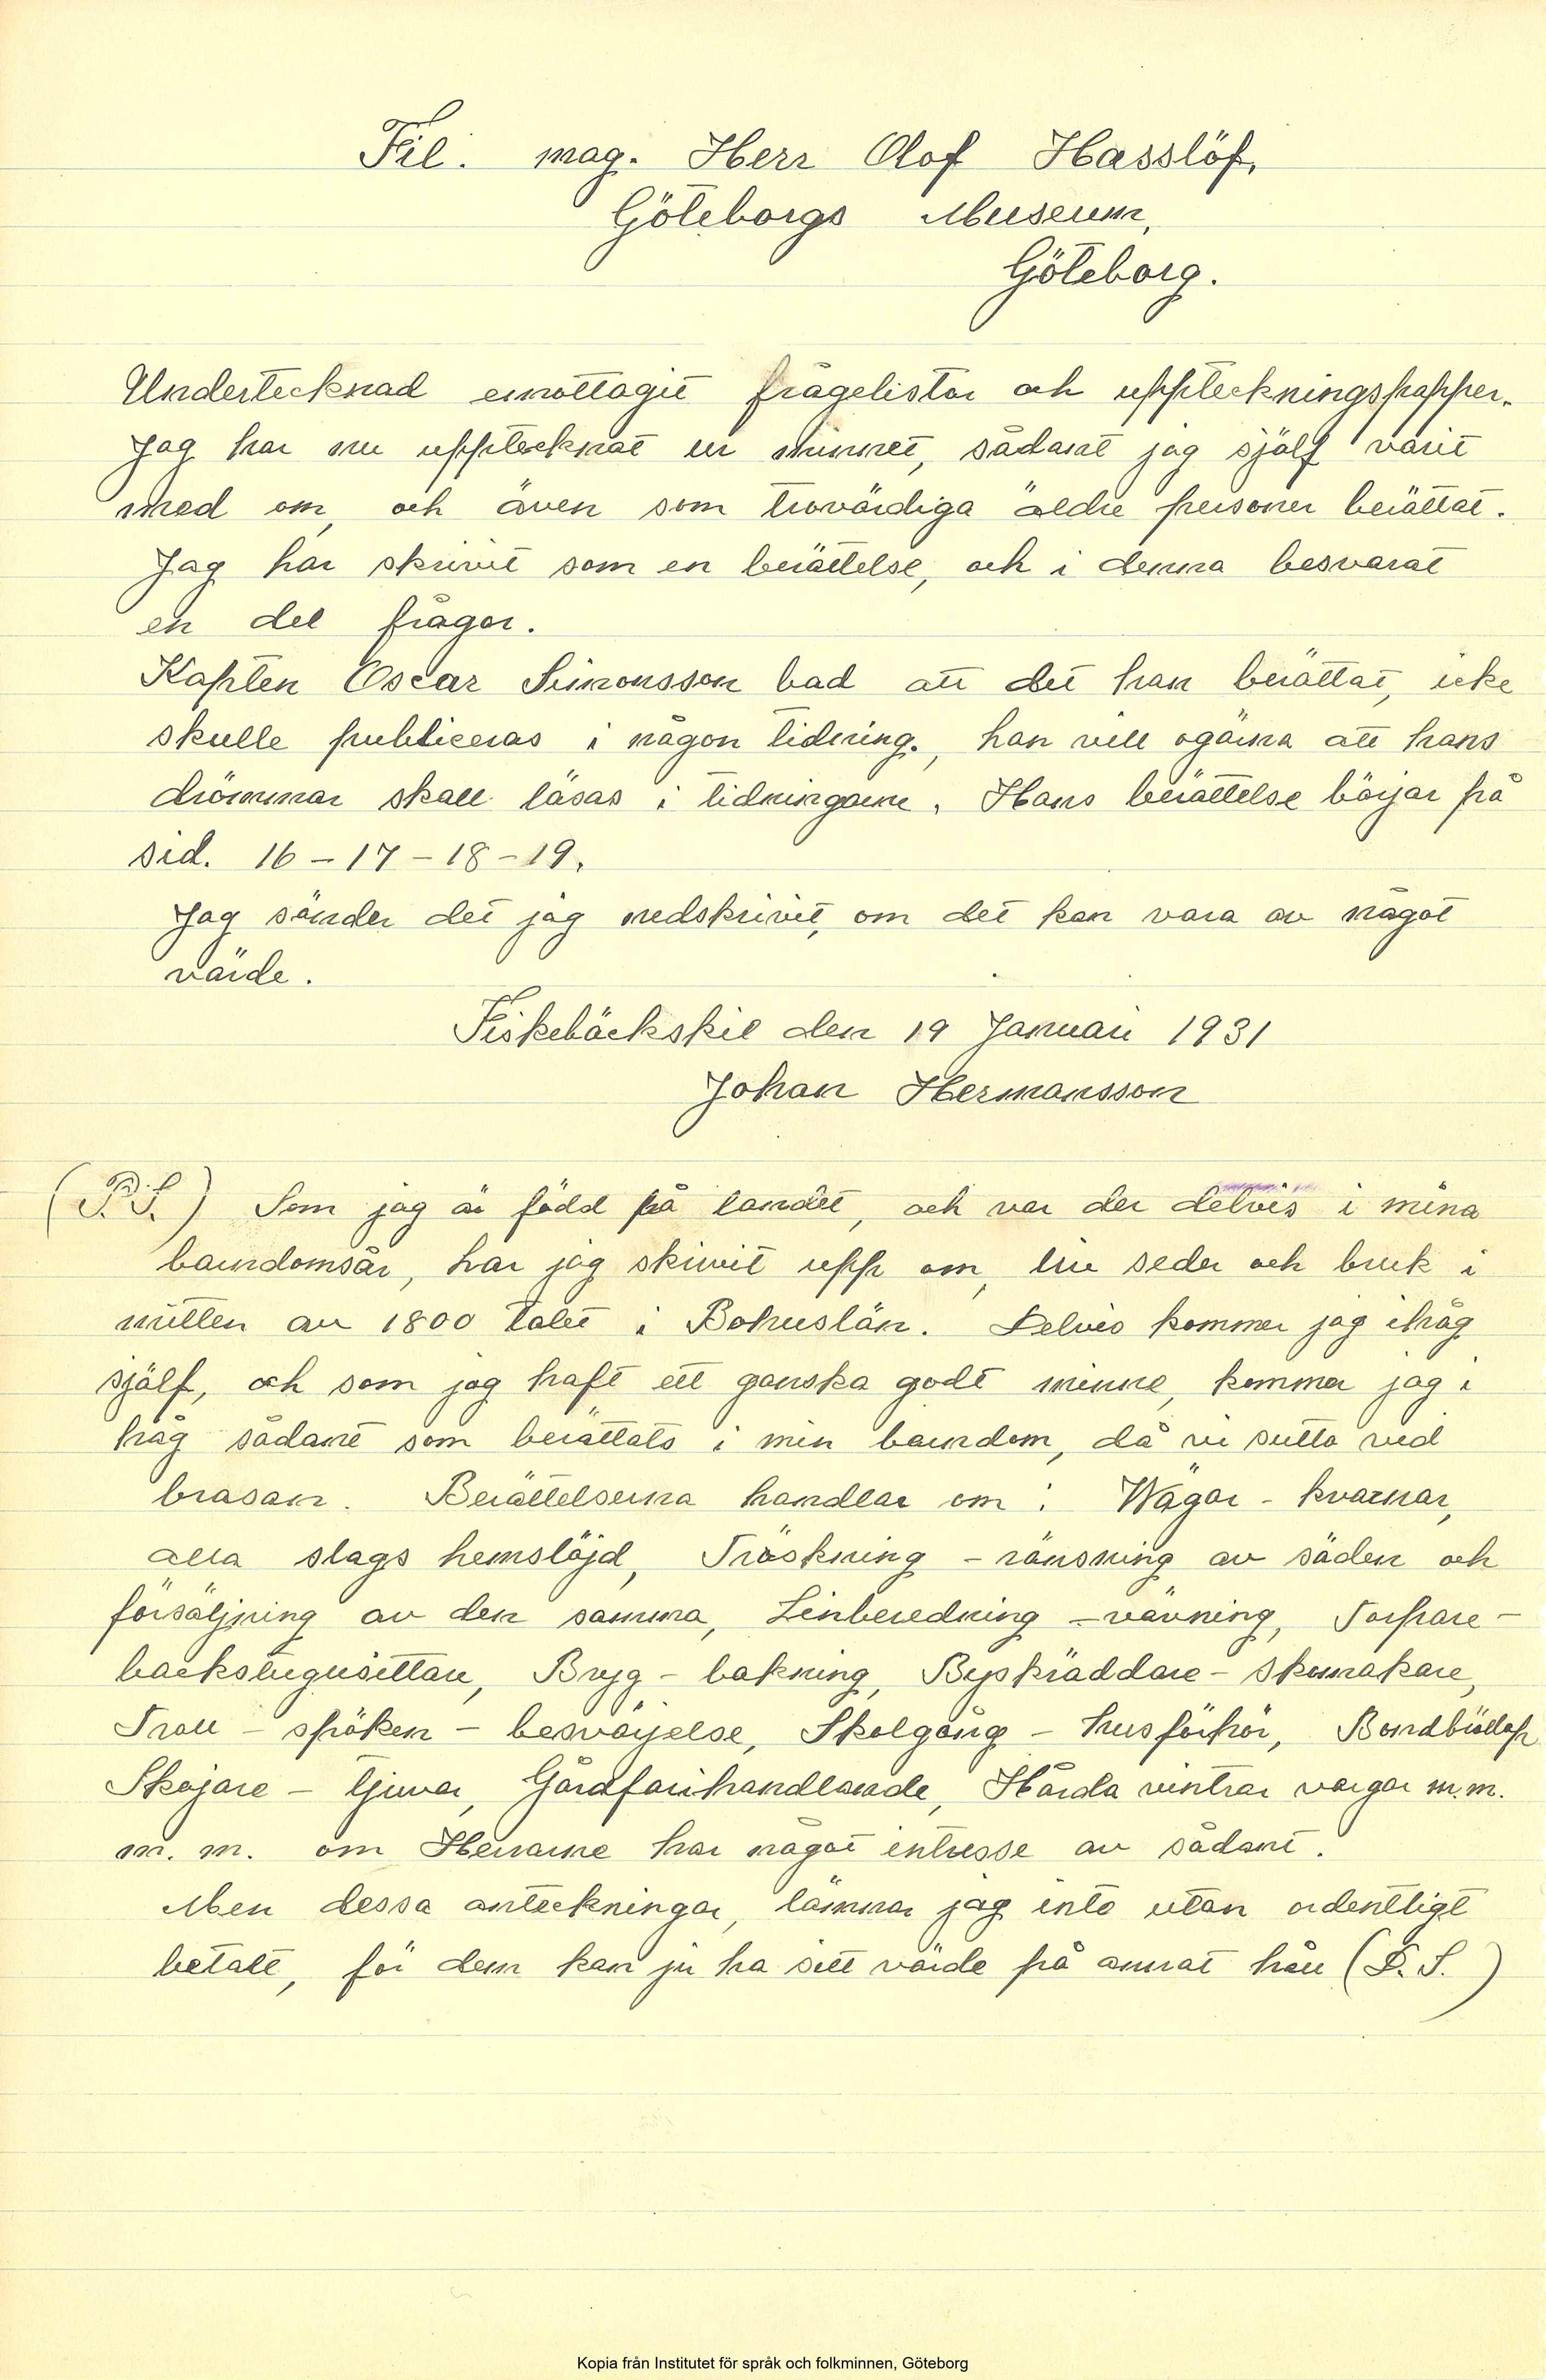 Fil. mag. Herr Olof Hasslöf,
Göteborgs Museum,
Göteborg.
Undertecknad emottagit frågelistor och uppteckningspapper.
Jag har nu upptecknat ur minnet, sådant jag själf varit
med om, och även som trovärdiga äldre personer berättat.
Jag har skrivit som en berättelse, och i denna besvarat
en del frågor.
Kapten Oscar Simonsson bad att det han berättat, icke
skulle publiceras i någon tidning., han vill ogärna att hans
drömmar skall läsas i tidningarne. Hans berättelse börjar på
sid. 16 – 17 – 18 – 19.
Jag sänder det jag nedskrivit, om det kan vara av något
värde.
Fiskebäckskil den 19 Januari 1931
Johan Hermansson
(P.S.) Som jag är född på landet, och var der delvis i mina
barndomsår, har jag skrivit upp om, liv seder och bruk i
mitten av 1800 talet i Bohuslän. Delvis kommer jag ihåg
själf, och som jag haft ett ganska godt minne, kommer jag i
håg sådant som berättats i min barndom, då vi sutto vid
brasan. Berättelserna handlar om: Wägar – kvarnar,
alla slags hemslöjd, Tröskning – ränsning av säden och
försäljning av den samma, Linberedning – vävning, Torpare –
backstugusittare, Bryg – bakning, Byskräddare – skomakare,
Troll – spöken – besvärjelse, Skolgång – husförhör, Bondbröllop
Skojare – tjuvar, Gårdfarihandlande, Hårda vintrar vargar m.m.
m. m. om Herrarne har något intresse av sådant.
Men dessa anteckningar, lämnar jag inte utan ordentligt
betalt, för dem kan ju ha sitt värde på annat håll (D.S.)
Kopia från Institutet för språk och folkminnen, Göteborg